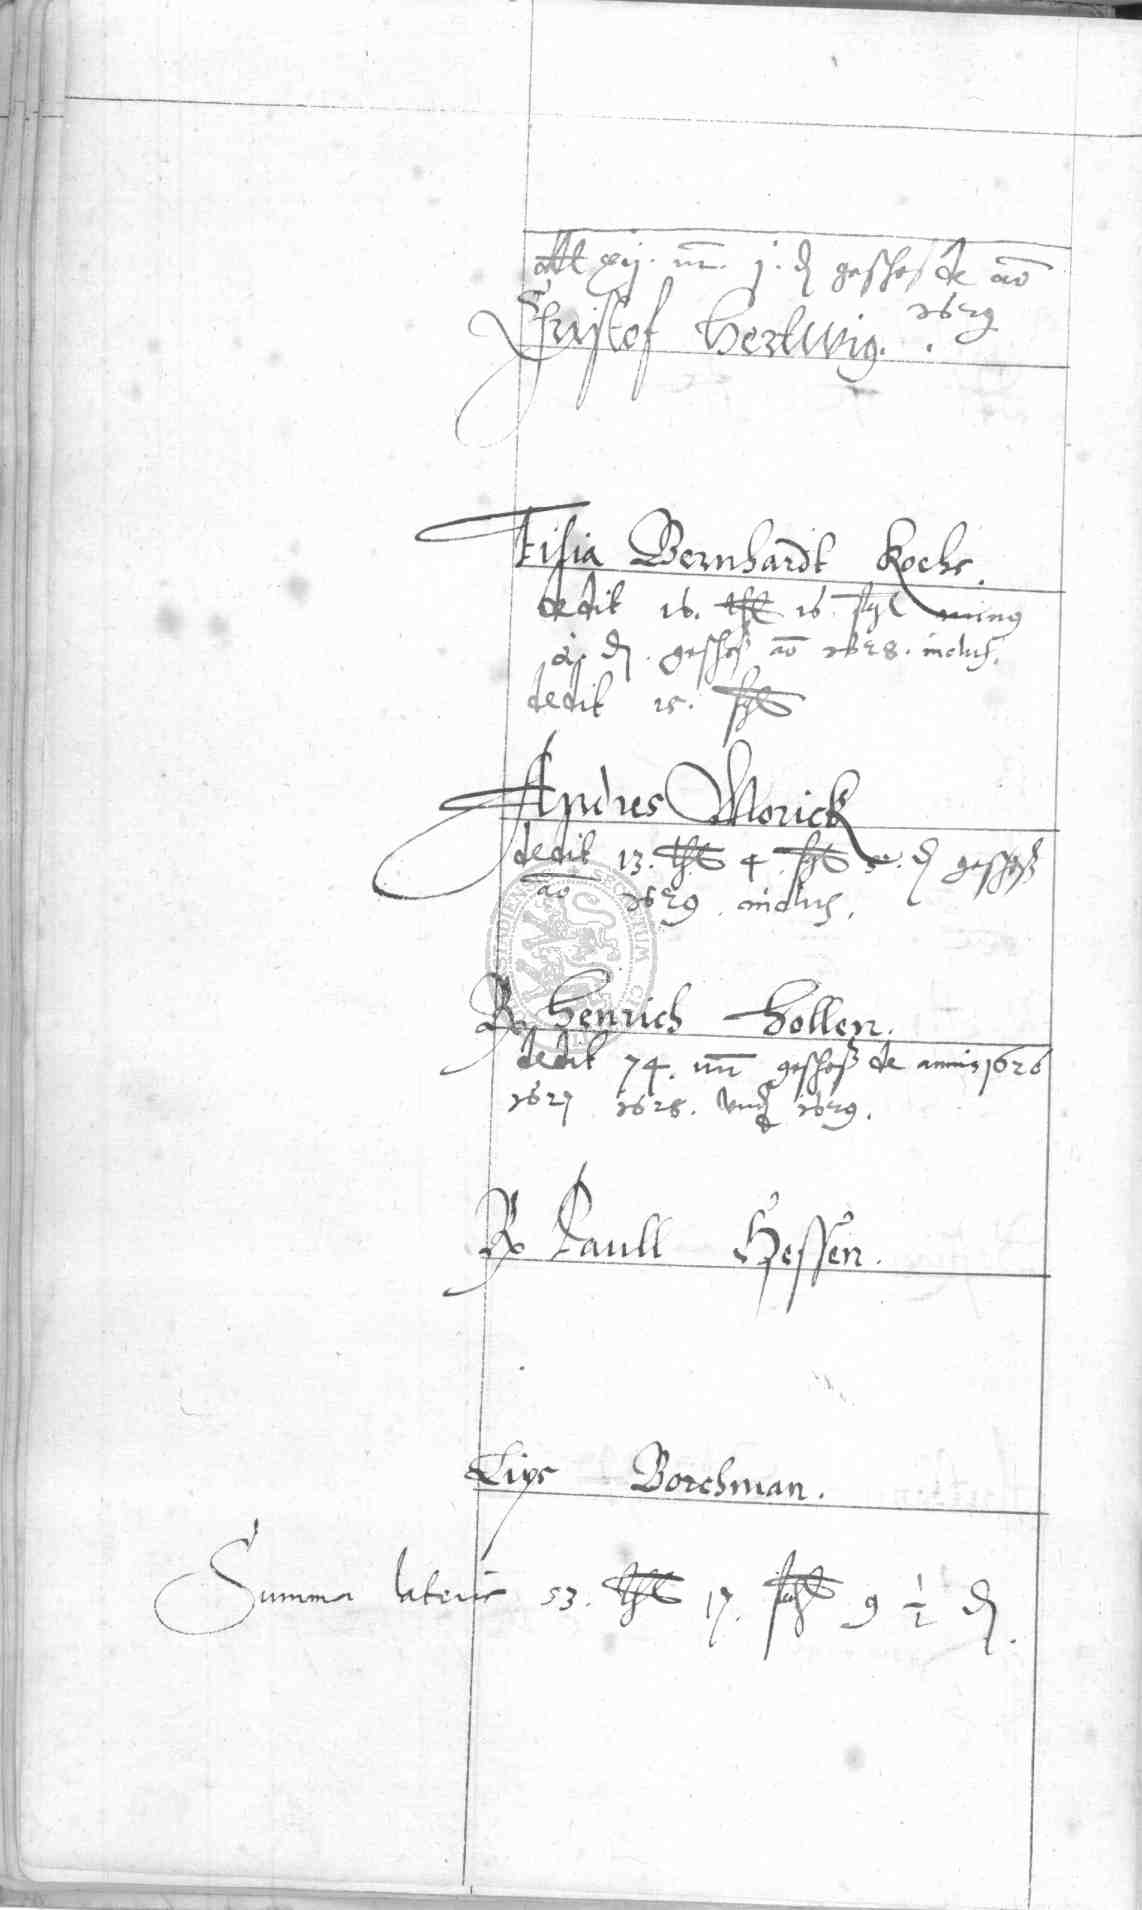 dt xij. m. j. d geschoß de ao
1629
Christof Hertwig.
Filia Bernhardt Kochs.
dedit 16. thl 16. ßgl minus
d. geschoß ao 1628. inclus.
dedit 15. ßgl
Andres Morick
dedit 13. thl 4 ßgl d geschoß
ao 1629 inclus.
R Henrich Hollen.
dedit 74. m geschoß de annis 1626
1627 1628. vnd 1629.
R Paull Hessen.
Lips Borchman.
Summa lateris 53. thl 17. ßgl 9 1/2 d.